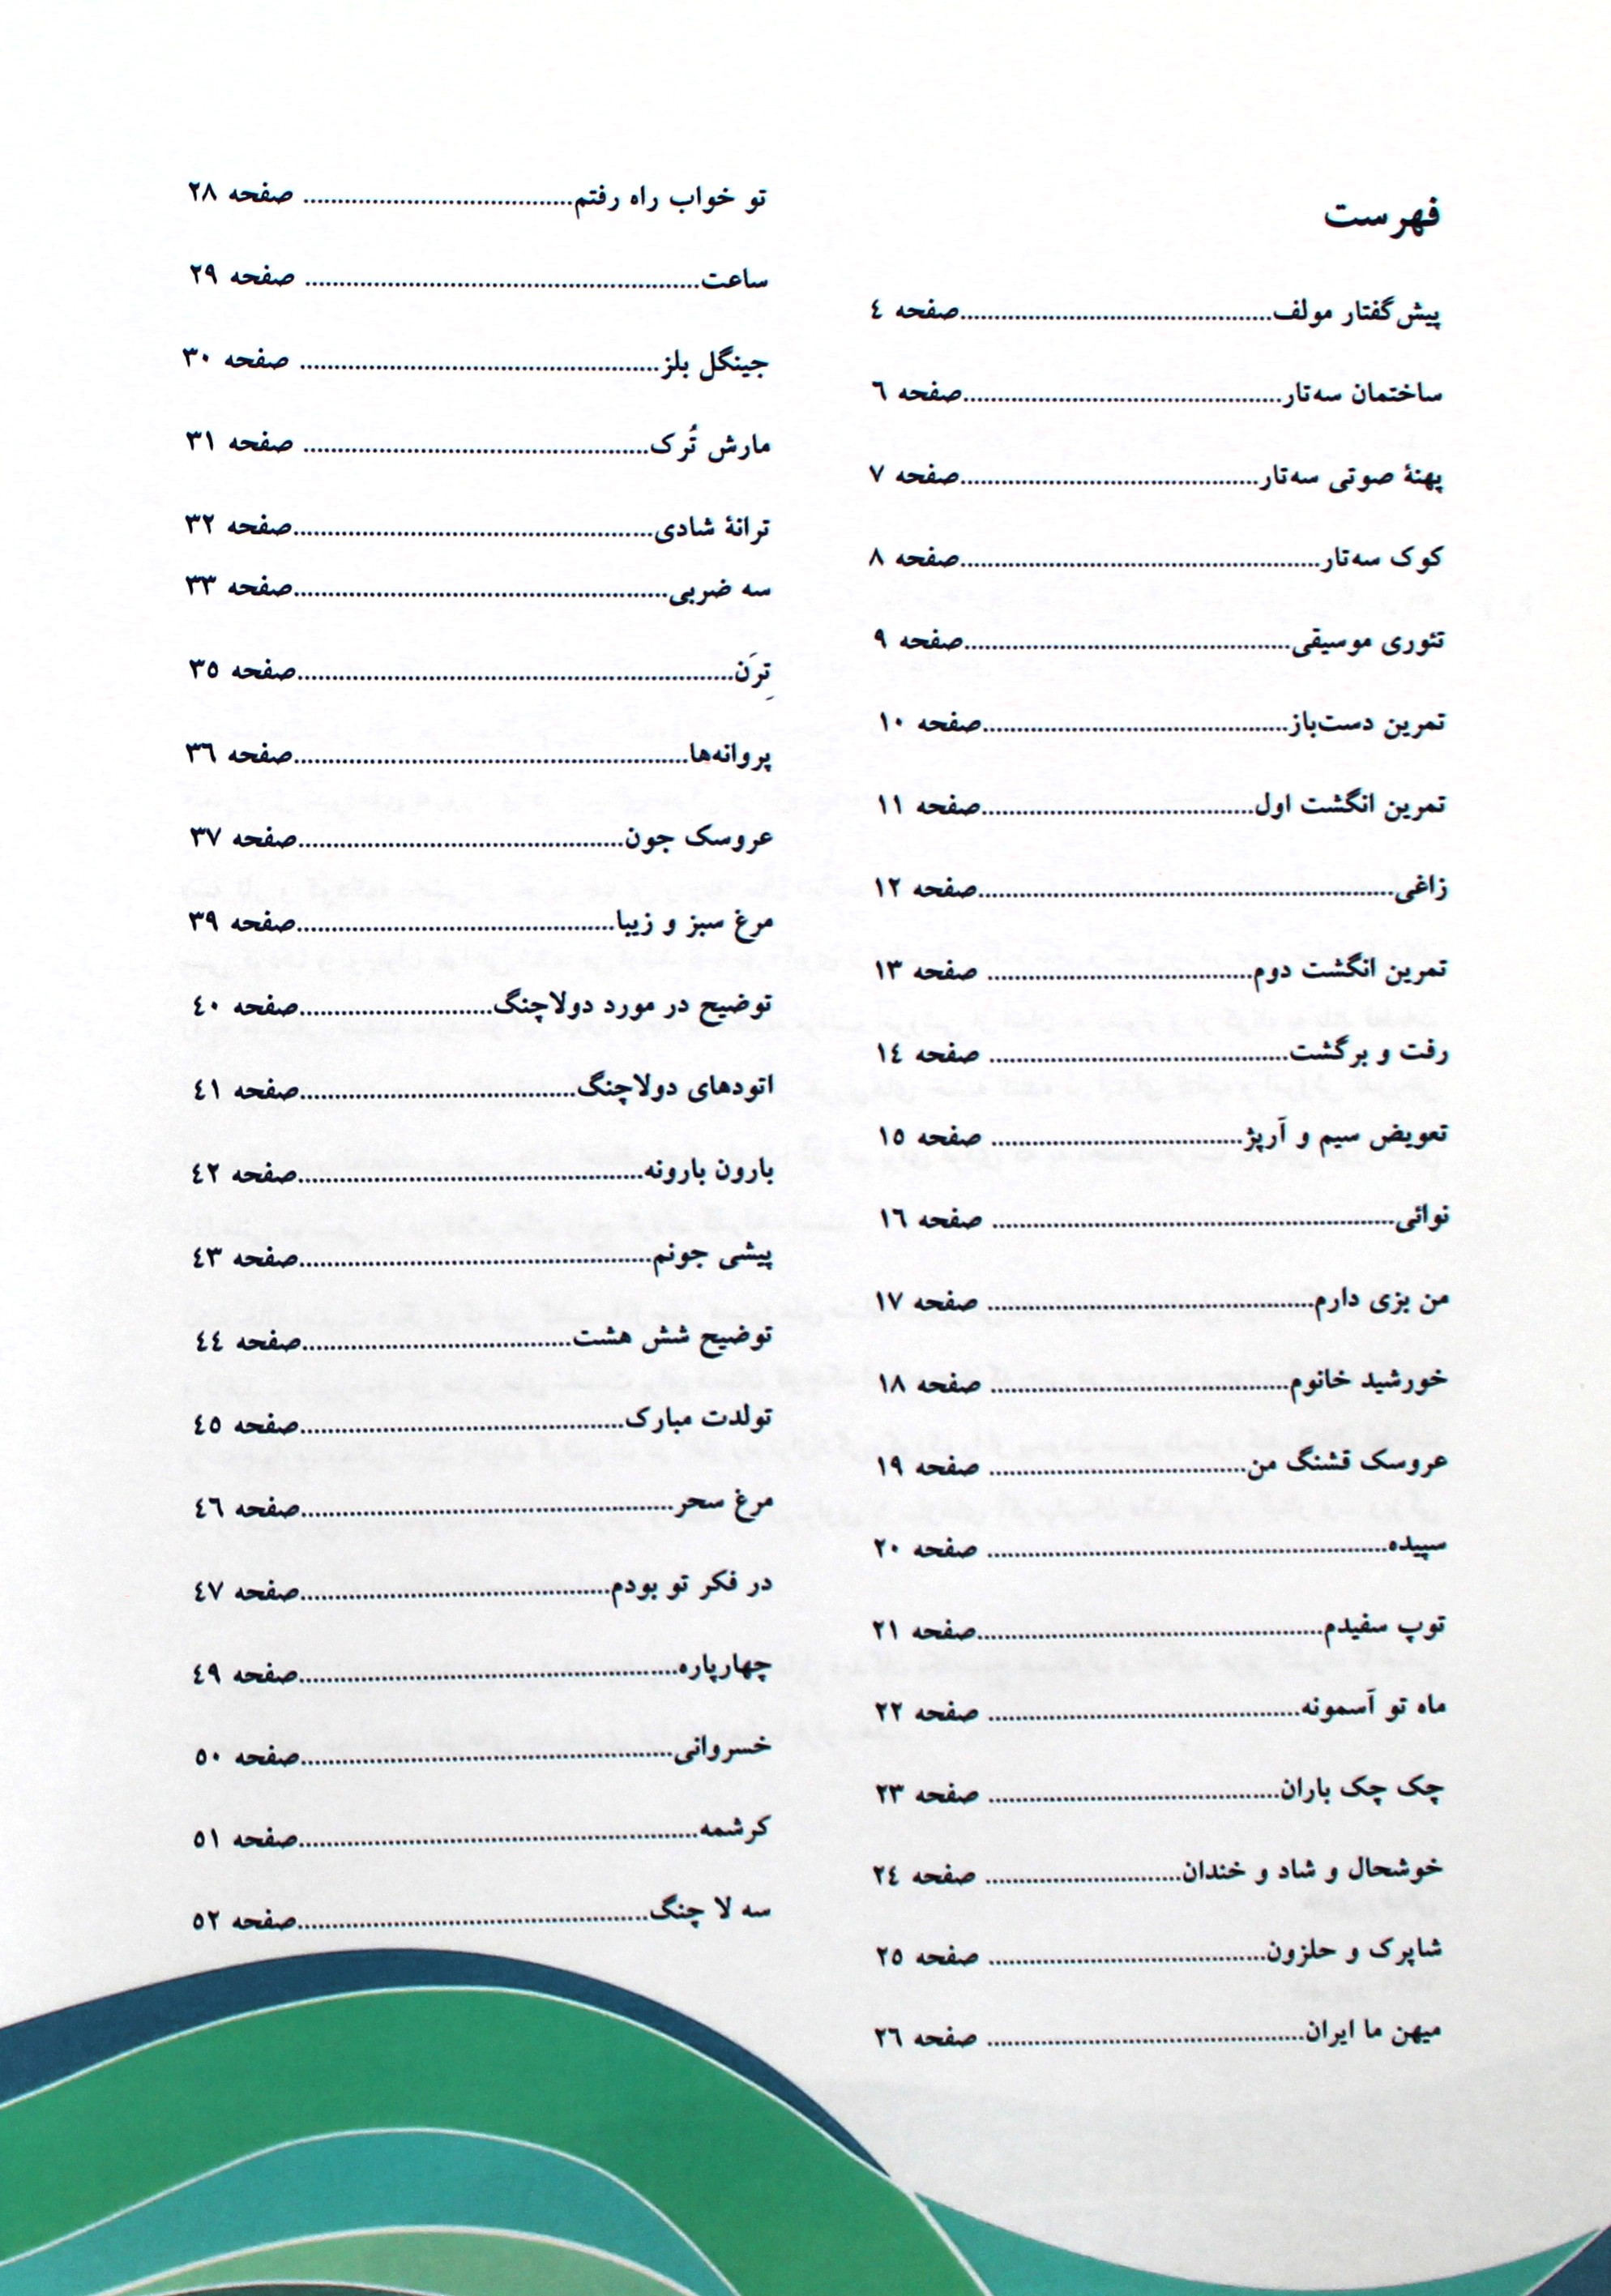 فهرست
پیش‌گفتار مولف..............................................صفحه ٤
ساختمان سه‌تار..............................................صفحه ٦
پهنهٔ صوتی سه‌تار............................................صفحه ۷
کوک سه‌تار.....................................................صفحه ۸
تئوری موسیقی................................................صفحه ۹
تمرین دست‌باز.............................................صفحه ۱۰
تمرین انگشت اول........................................صفحه ۱۱
زاغی..............................................................صفحه ۱۲
تمرین انگشت دوم....................................... صفحه ۱۳
رفت و برگشت............................................ صفحه ۱٤
تعویض سیم و آرپژ..................................... صفحه ۱٥
نوائی............................................................ صفحه ۱٦
من بزی دارم................................................ صفحه ۱۷
خورشید خانوم............................................ صفحه ۱۸
عروسک قشنگ من...................................... صفحه ۱۹
سپیده........................................................... صفحه ۲۰
توپ سفیدم...................................................صفحه ۲۱
ماه تو آسمونه.............................................. صفحه ۲۲
چک چک باران........................................... صفحه ۲۳
خوشحال و شاد و خندان............................. صفحه ۲٤
شاپرک و حلزون......................................... صفحه ۲٥
میهن ما ایران............................................... صفحه ۲٦
تو خواب راه رفتم........................................ صفحه ۲۸
ساعت........................................................... صفحه ۲۹
جینگل بلز..................................................... صفحه ۳۰
مارش تُرک................................................... صفحه ۳۱
ترانهٔ شادی.....................................................صفحه ۳۲
سه ضربی.......................................................صفحه ۳۳
تِرَن.................................................................صفحه ۳٥
پروانه‌ها..........................................................صفحه ۳٦
عروسک جون................................................صفحه ۳۷
مرغ سبز و زیبا...............................................صفحه ۳۹
توضیح در مورد دولاچنگ............................صفحه ٤۰
اتودهای دولاچنگ.........................................صفحه ٤۱
بارون بارونه...................................................صفحه ٤۲
پیشی جونم....................................................صفحه ٤۳
توضیح شش هشت........................................صفحه ٤٤
تولدت مبارک................................................صفحه ٤٥
مرغ سحر.......................................................صفحه ٤٦
در فکر تو بودم..............................................صفحه ٤۷
چهارپاره........................................................صفحه ٤۹
خسروانی.......................................................صفحه ٥۰
کرشمه...........................................................صفحه ٥۱
سه لا چنگ....................................................صفحه ٥۲